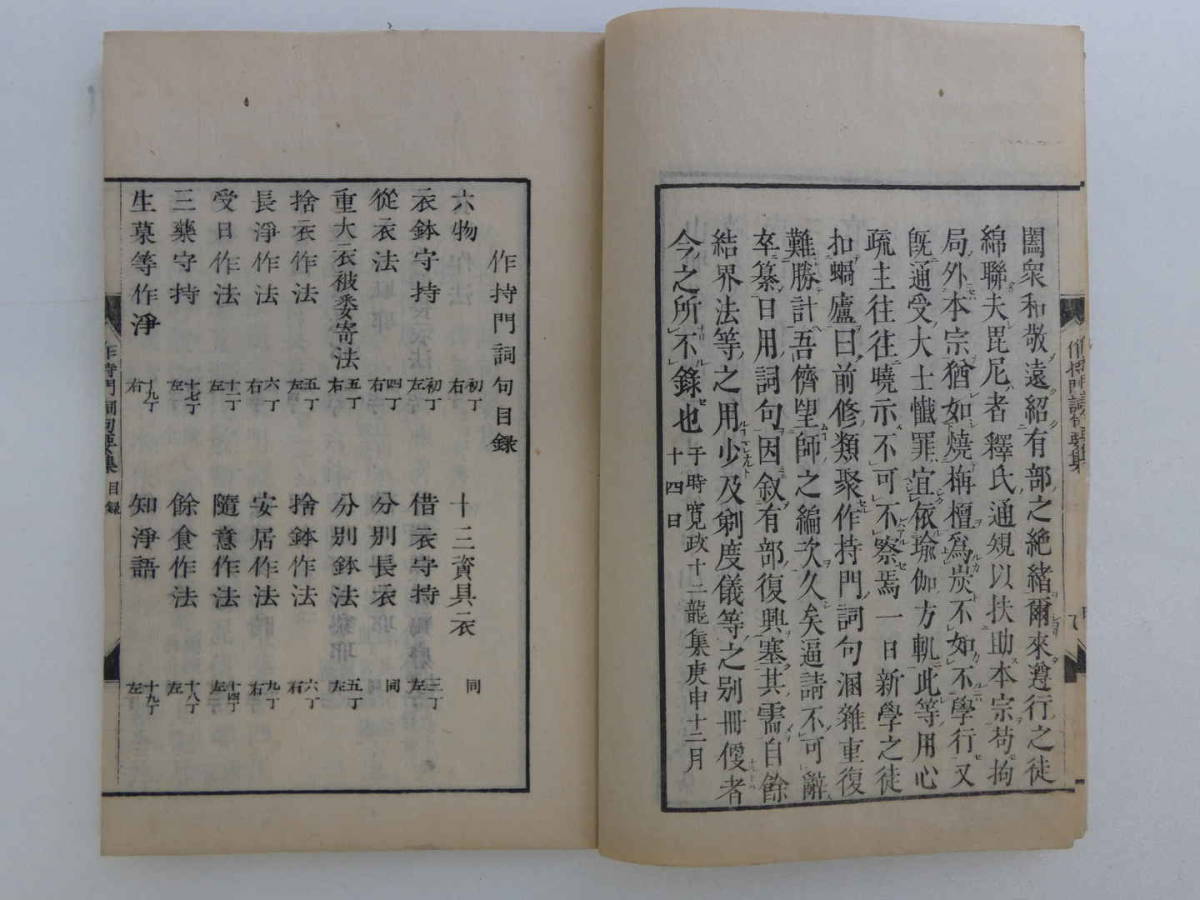 闔衆和敬遠紹有部之絶緒爾來遵行之徒
綿聯夫毘尼者釋氏通規以扶助本宗苟拘
局外本宗猶如燒栴檀爲炭不如不學行又
既通受大士懺罪宜依瑜伽方軌此等用心
疏主往往曉示不可不察焉一日新學之徒
扣蝸廬曰前修類聚作持門詞句溷雜重復
難勝計吾儕望師之編次久矣逼請不可辭
卒纂日用詞句因叙有部復興塞其需自餘
結界法等之用少及剃度儀等之別冊㑪者
今之所不錄也于時寛政十二龍集庚申十二月
十四日
作持門詞句目録
六物 初丁右
十三資具衣 同
衣鉢守持 初丁左
借衣守持 三丁左
從衣法 四丁右
分別長衣 同
重大衣被委寄法 五丁右
分別鉢法 五丁左
捨衣作法 五丁左
捨鉢作法 六丁右
長淨作法 六丁右
安居作法 九丁右
受日作法 十二丁左
隨意作法 十四丁左
三藥守持 十七丁左
餘食作法 十八丁左
生菓等作淨 十九丁右
知淨語 十九丁左
作持門詞句要集 目録